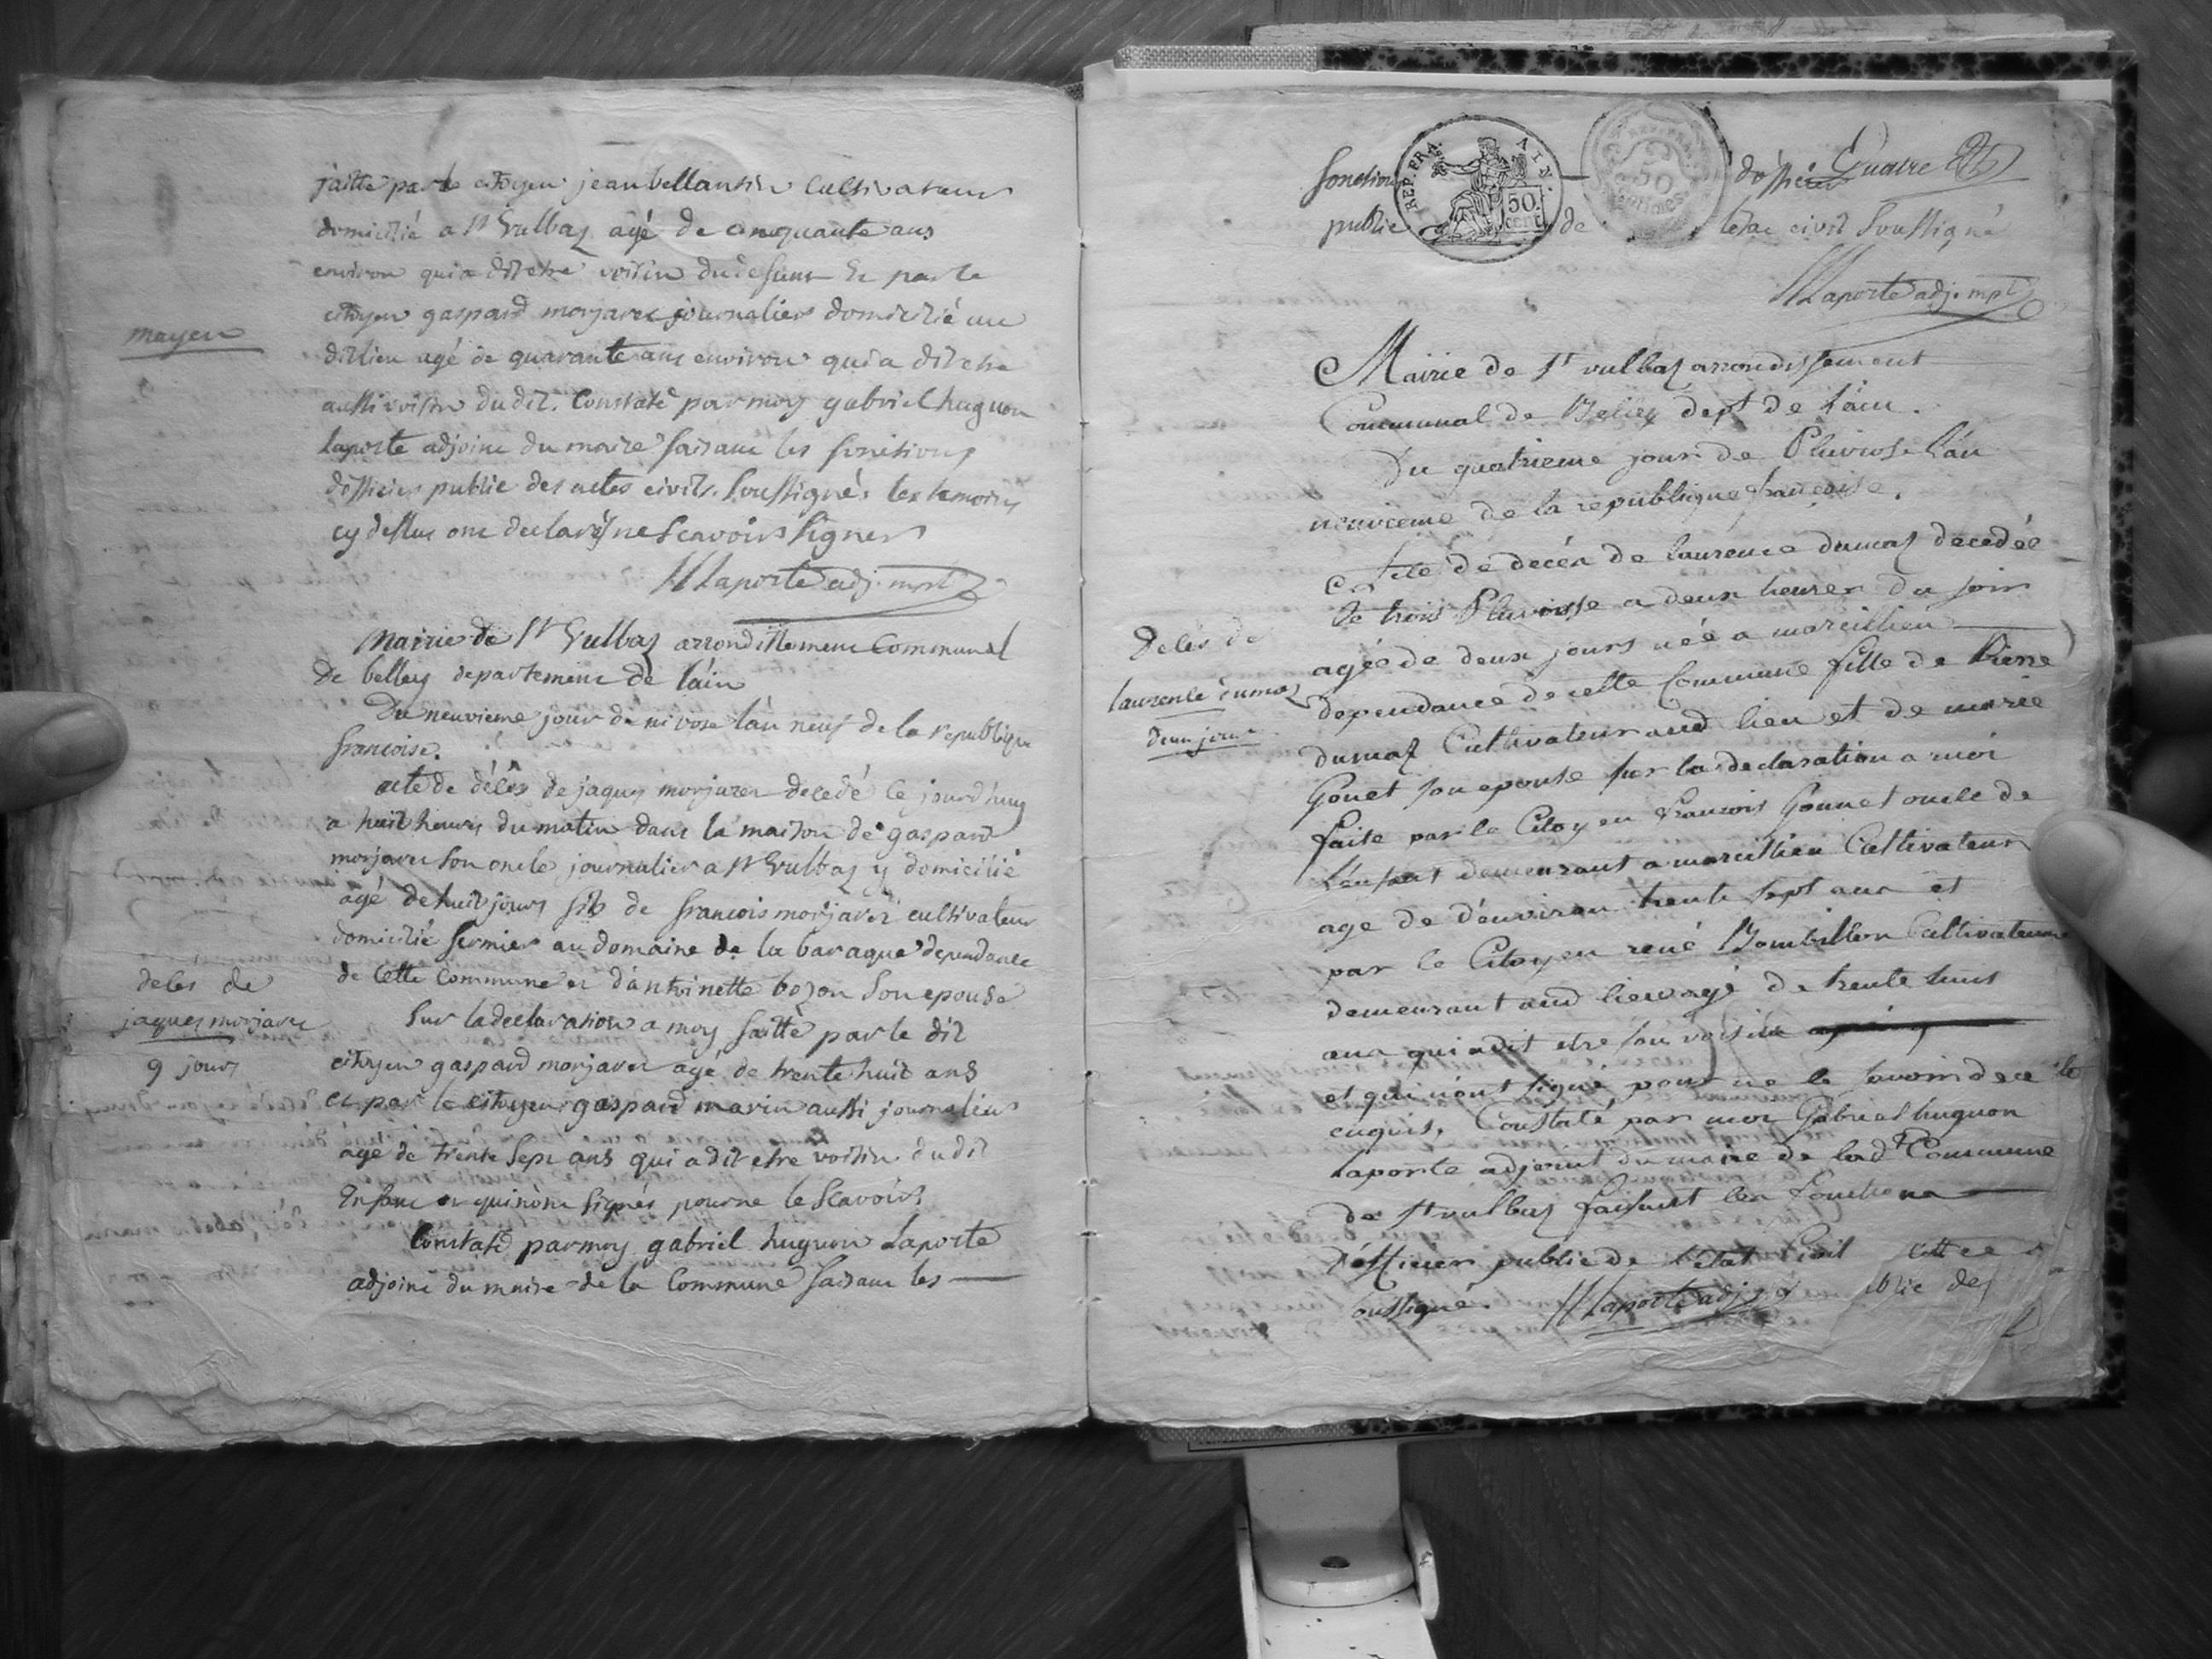 faitte par le citoyen jean bellantin Cultivateur
domicilié a St Vulbaz agé de cinquante ans
environ qui a dit etre voisin du defunt Et par le
citoyen gaspard morjaret journalier domicilié au
dit lieu agé de quarante ans environ qui a dit etre
aussi voisin dudit. Constaté par moy gabriel huguon
laporte adjoint du maire faisant les fonctions
dofficier public des actes civils. Soussigné, les temoins
cy dessus ont declarés ne Scavoir Signer
Laporte adj. mpl
mayen
Mairie de St Vulbaz arrondissement Communal
de belley departement de l'ain
Du neuvieme jour de nivose l'an neuf de la republique
francoise.
acte de décés de jaques morjaret decedé le jourd'huy
a huit heures du matin dans la maison de gaspard
morjaret son oncle journalier a St Vulbaz y domicilié
agé de huit jours fils de francois morjaret cultivateur
domicilié fermier au domaine de la baraque dependance
de cette Commune et d'antoinette bozon Son epouse
Sur la declaration a moy faitte par le dit
citoyen gaspard morjaret agé de trente huit ans
et par le citoyen gaspard marin aussi journalier
agé de trente Sept ans qui a dit etre voisin dudit
Enfant et qui nont Signés pour ne le Scavoir
Constaté par moy gabriel huguon Laporte
adjoint du maire de la Commune faisant les
deces de
jaques morjaret
9 jours
fonctions dofficier Quatre
public de letat civil Soussigné
REP. FRA. AIN.
50 cent.
REP. FRA.
50
centimes
Laporte adj. mpl
Mairie de St vulbaz arrondissement
Communal de Belley dept de l'ain.
Du quatrieme jour de Pluviose l'an
neuvieme de la republique francaise.
Acte de decés de laurence dumaz decedée
le trois Pluviosse a deux heures du soir
agée de deux jours née a marcillieu
dependance de cette Commune fille de Pierre
dumaz Cultivateur aud lieu et de marie
Gonet son epouse sur la declaration a moi
faite par le Citoyen francois Gonnet oncle de
l'enfant demeurant a marcillieu Cultivateur
age de d'environ trente sept ans et
par le Citoyen rené Bombillon Cultivateur
demeurant aud lieu agé de trente huit
ans qui a dit etre son voisin
et qui nont signé pour ne le savoir de ce
enquis. Constaté par moi Gabriel huguon
Laporte adjoint du maire de lad Commune
de St vulbaz faisant les fonctions
d'officier public de l'etat Civil
oussigné. Laporte adj
blic des
Deces de
laurence dumaz
deux jours